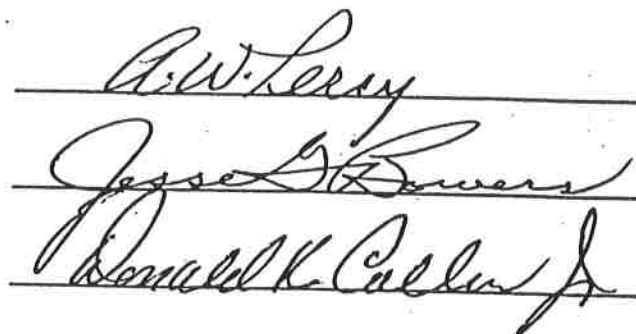 A. W. Leroy
Jesse G Bowers
Donald K. Collin Jr